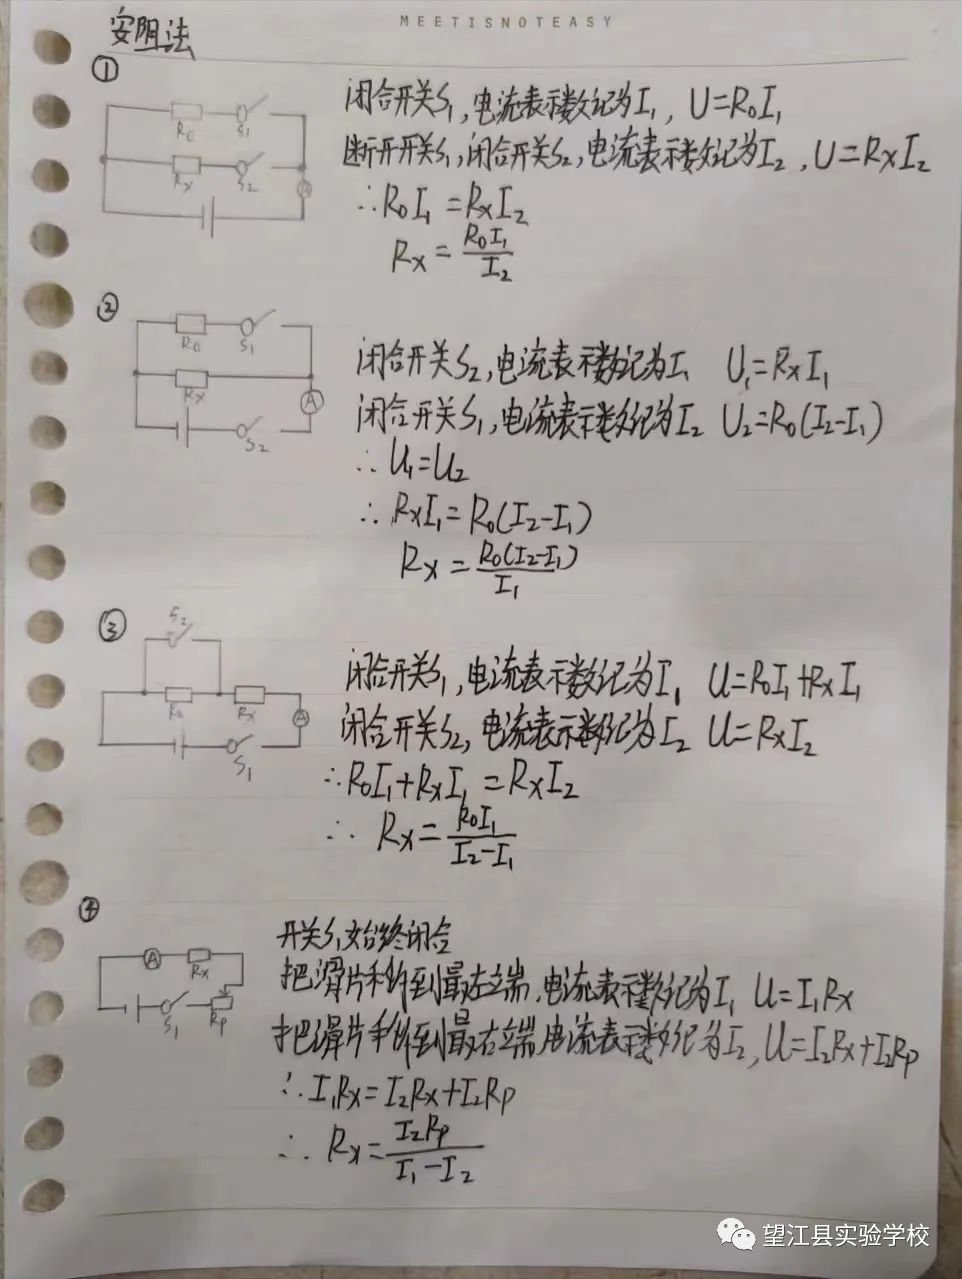 MEETISNOTEASY
安阻法
①
R0 S1
Rx S2
A
闭合开关S1,电流表示数记为I1, U=R0I1
断开开关S1,闭合开关S2,电流表示数记为I2,U=RxI2
∴R0I1=RxI2
Rx=R0I1/I2
②
R0 S1
Rx
A
S2
闭合开关S2,电流表示数记为I1 U1=RxI1
闭合开关S1,电流表示数记为I2 U2=R0(I2-I1)
∵U1=U2
∴RxI1=R0(I2-I1)
Rx=R0(I2-I1)/I1
③
S2
R0 Rx
A
S1
闭合开关S1,电流表示数记为I1 U=R0I1+RxI1
闭合开关S2,电流表示数记为I2 U=RxI2
∴R0I1+RxI1=RxI2
∴Rx=R0I1/I2-I1
④
A Rx
S1 Rp
开关S1始终闭合
把滑片移到最左端,电流表示数记为I1 U=I1Rx
把滑片移到最右端,电流表示数记为I2,U=I2Rx+I2Rp
∴I1Rx=I2Rx+I2Rp
∴Rx=I2Rp/I1-I2
望江县实验学校